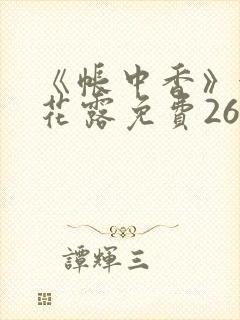 《帐中香》
花露免費26
譚輝三